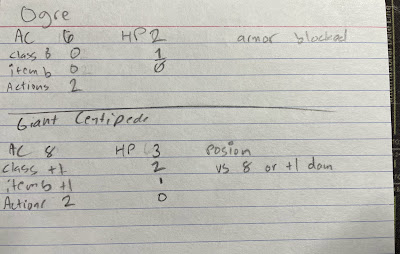 Ogre
AC 6 HP 2 armor blocked
class b 0 1
item b 0 0
Actions 2
Giant Centipede
AC 8 HP 3 Posion
class +1 2 vs 8 or +1 dam
item b +1 1
Actions 2 0